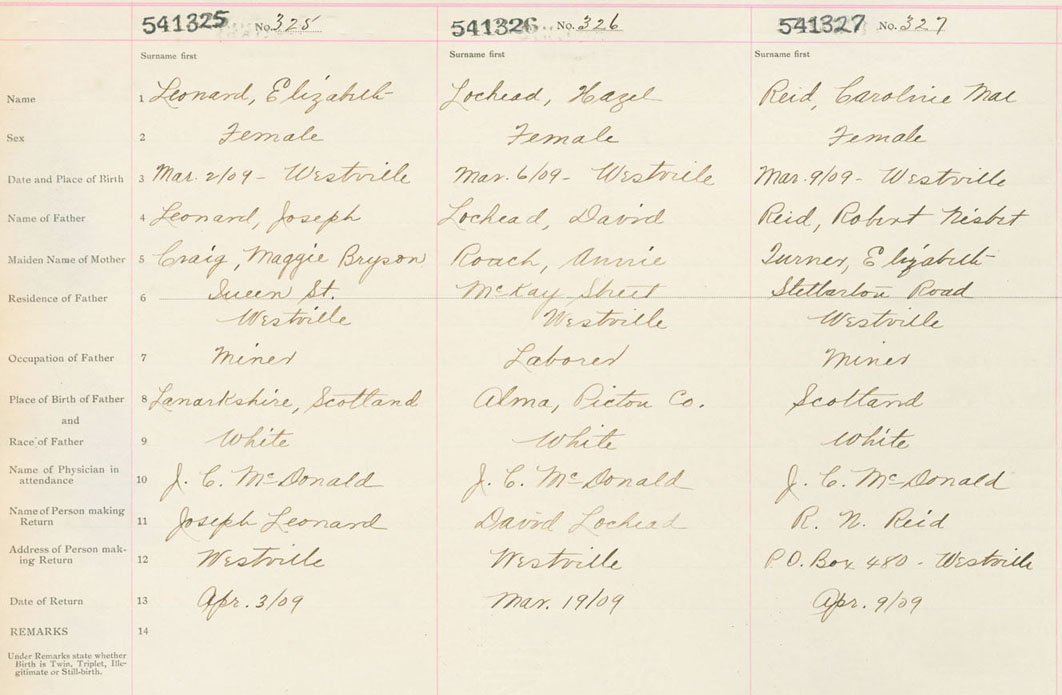 541325 No. 325 541326 No. 326 541327 No. 327
Surname first Surname first Surname first
Name 1 Leonard, Elizabeth Lochead, Hazel Reid, Caroline Mae
Sex 2 Female Female Female
Date and Place of Birth 3 Mar. 2/09 - Westville Mar. 6/09 - Westville Mar. 9/09 - Westville
Name of Father 4 Leonard, Joseph Lochead, David Reid, Robert Nisbet
Maiden Name of Mother 5 Craig, Maggie Bryson Roach, Annie Turner, Elizabeth
Residence of Father 6 Queen St. McKay Street Stellarton Road
Westville Westville Westville
Occupation of Father 7 Miner Laborer Miner
Place of Birth of Father 8 Lanarkshire, Scotland Alma, Pictou Co. Scotland
and
Race of Father 9 White White White
Name of Physician in
attendance 10 J. C. McDonald J. C. McDonald J. C. McDonald
Name of Person making
Return 11 Joseph Leonard David Lochead R. N. Reid
Address of Person mak-
ing Return 12 Westville Westville P.O. Box 480 - Westville
Date of Return 13 Apr. 3/09 Mar. 19/09 Apr. 9/09
REMARKS 14
Under Remarks state whether
Birth is Twin, Triplet, Ille-
gitimate or Still-birth.